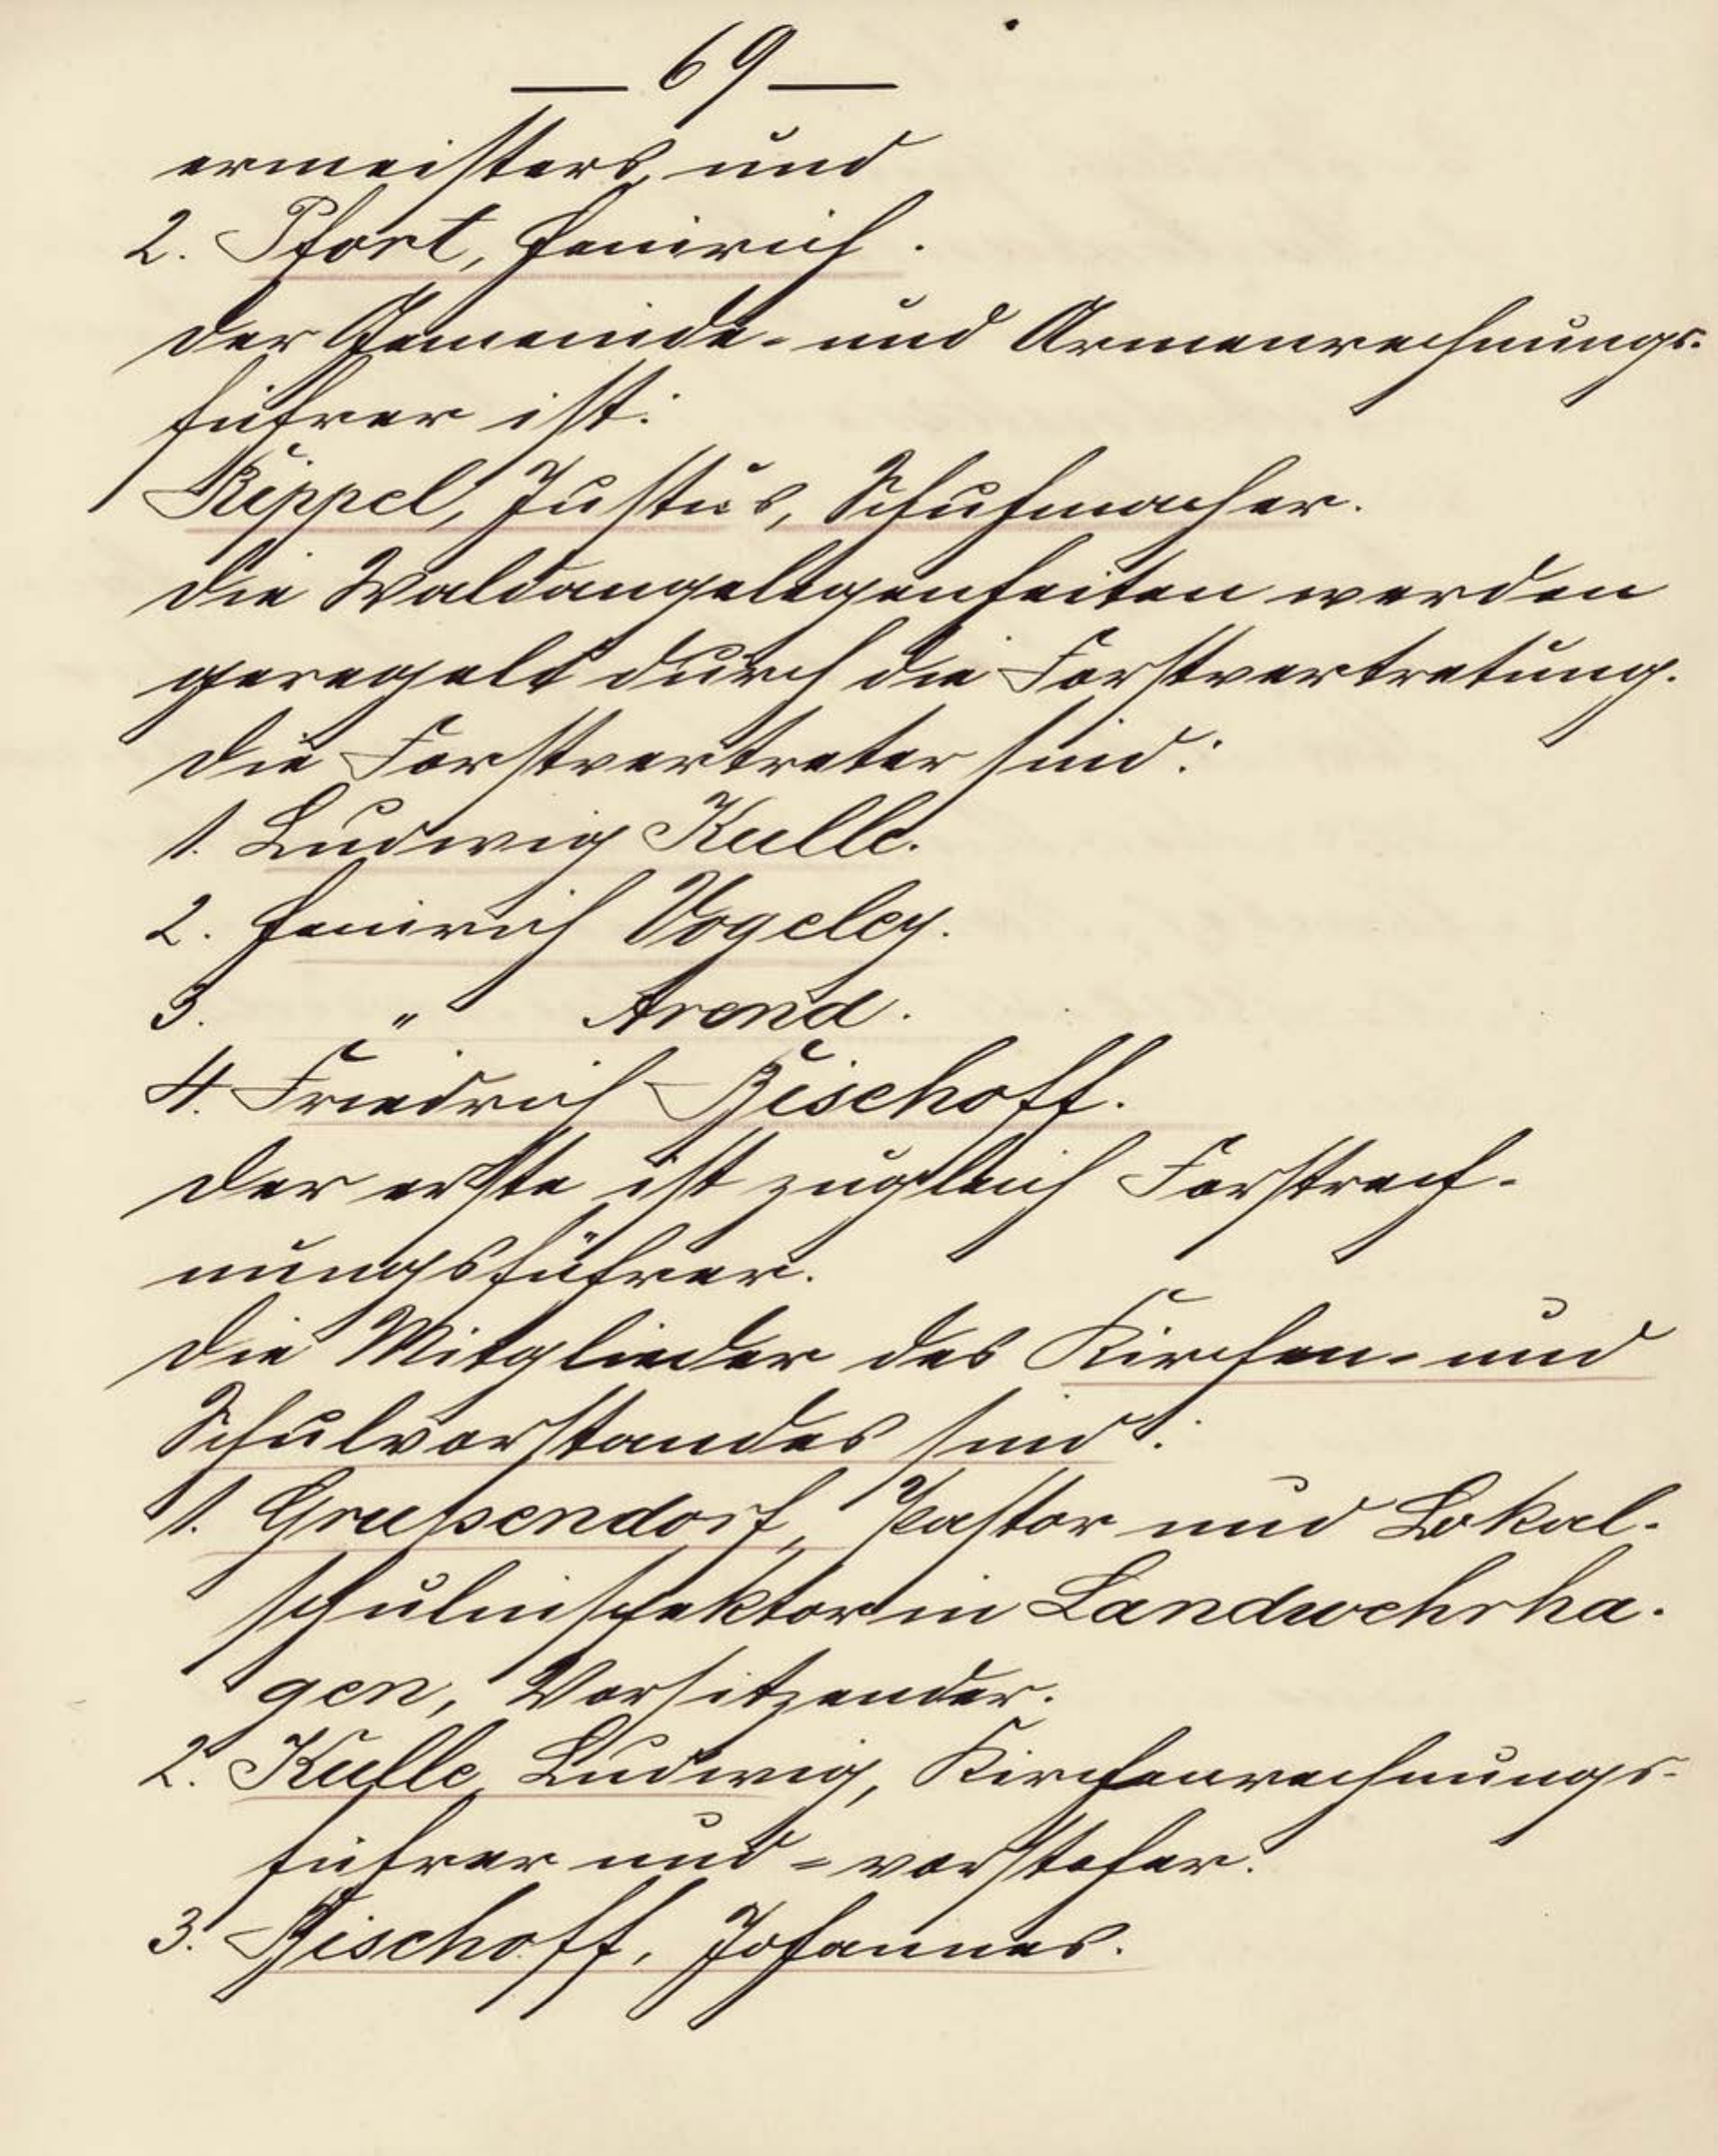 — 69 —
ermeisters, und
2. Pfort, Heinrich.
Der Gemeinde- und Armenrechnungs-
führer ist:
Rippel, Justus, Schuhmacher.
Die Waldangelegenheiten werden
geregelt durch die Forstvertretung.
Die Forstvertreter sind:
1. Ludwig Kulle.
2. Heinrich Vogeley.
3. " Arend.
4. Friedrich Bischoff.
Der erste ist zugleich Forstrech-
nungsführer.
Die Mitglieder des Kirchen- und
Schulvorstandes sind:
1. Grußendorf, Pastor und Lokal-
schulinspektor in Landwehrha-
gen, Vorsitzender.
2. Kulle, Ludwig, Kirchenrechnungs-
führer und -vorsteher.
3. Bischoff, Johannes.